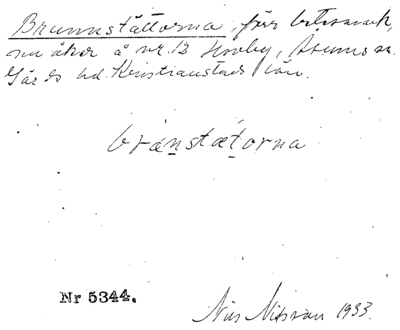 Brunnstättorna, förr betesmark,
nu åker å nr. 12 Horby, Åsums sn.
Gärds hd. Kristianstads län.
bränstætorna
Nr 5344.
Nils Nilsson 1933.